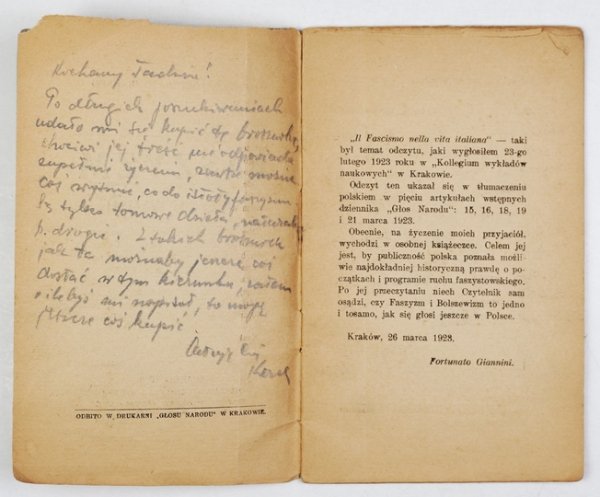 Kochany Tadziu!
Po długich poszukiwaniach
udało mi się kupić tę broszurkę,
chociaż jej treść nie odpowiada
zupełnie
coś co do
są tylko tomowe dzieła,
b. drogie. Z takich broszurek
jak ta możnaby jeszcze coś
dostać w tym kierunku, zatem
o ile byś mi napisał, to mogę
jeszcze coś kupić
ODBITO W DRUKARNI „GŁOSU NARODU" W KRAKOWIE.
„Il Fascismo nella vita italiana" — taki
był temat odczytu, jaki wygłosiłem 23-go
lutego 1923 roku w „Kollegium wykładów
naukowych" w Krakowie.
Odczyt ten ukazał się w tłumaczeniu
polskiem w pięciu artykułach wstępnych
dziennika „Głos Narodu": 15, 16, 18, 19
i 21 marca 1923.
Obecnie, na życzenie moich przyjaciół,
wychodzi w osobnej książeczce. Celem jej
jest, by publiczność polska poznała możli-
wie najdokładniej historyczną prawdę o po-
czątkach i programie ruchu faszystowskiego.
Po jej przeczytaniu niech Czytelnik sam
osądzi, czy Faszyzm i Bolszewizm to jedno
i tosamo, jak się głosi jeszcze w Polsce.
Kraków, 26 marca 1923.
Fortunato Giannini.